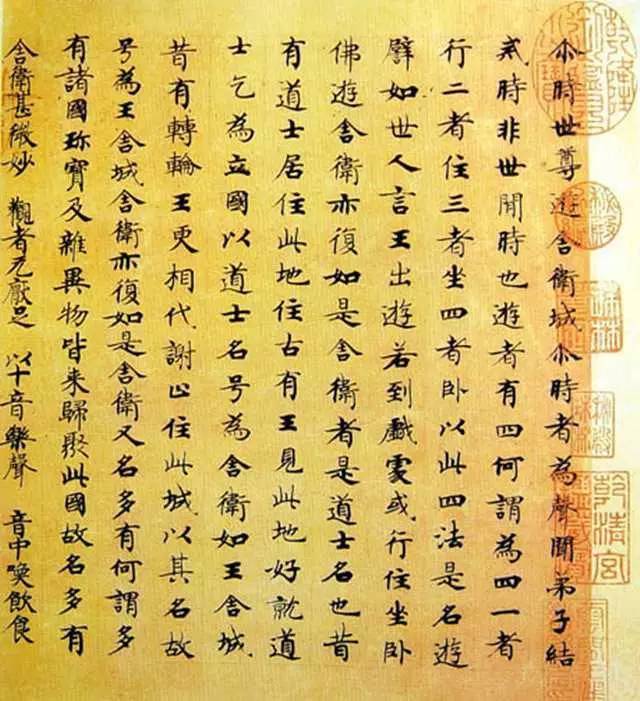 尒時世尊遊舍衛城尒時者為聲聞弟子結
貳時非世聞時也遊者有四何謂為四一者
行二者住三者坐四者卧以此四法是名遊
譬如世人言王出遊若到戲處或行住坐卧
佛遊舍衛亦復如是舍衛者是道士名也昔
有道士居住此地住古有王見此地好就道
士乞為立國以道士名号為舍衛如王舍城
昔有轉輪王更相代謝止住此城以其名故
号為王舍城舍衛亦復如是舍衛又名多有何謂多
有諸國珎寶及雜異物皆来歸聚此國故名多有
舍衛甚微妙 觀者无厭足 以十音樂聲 音中喚飲食
乾清宮